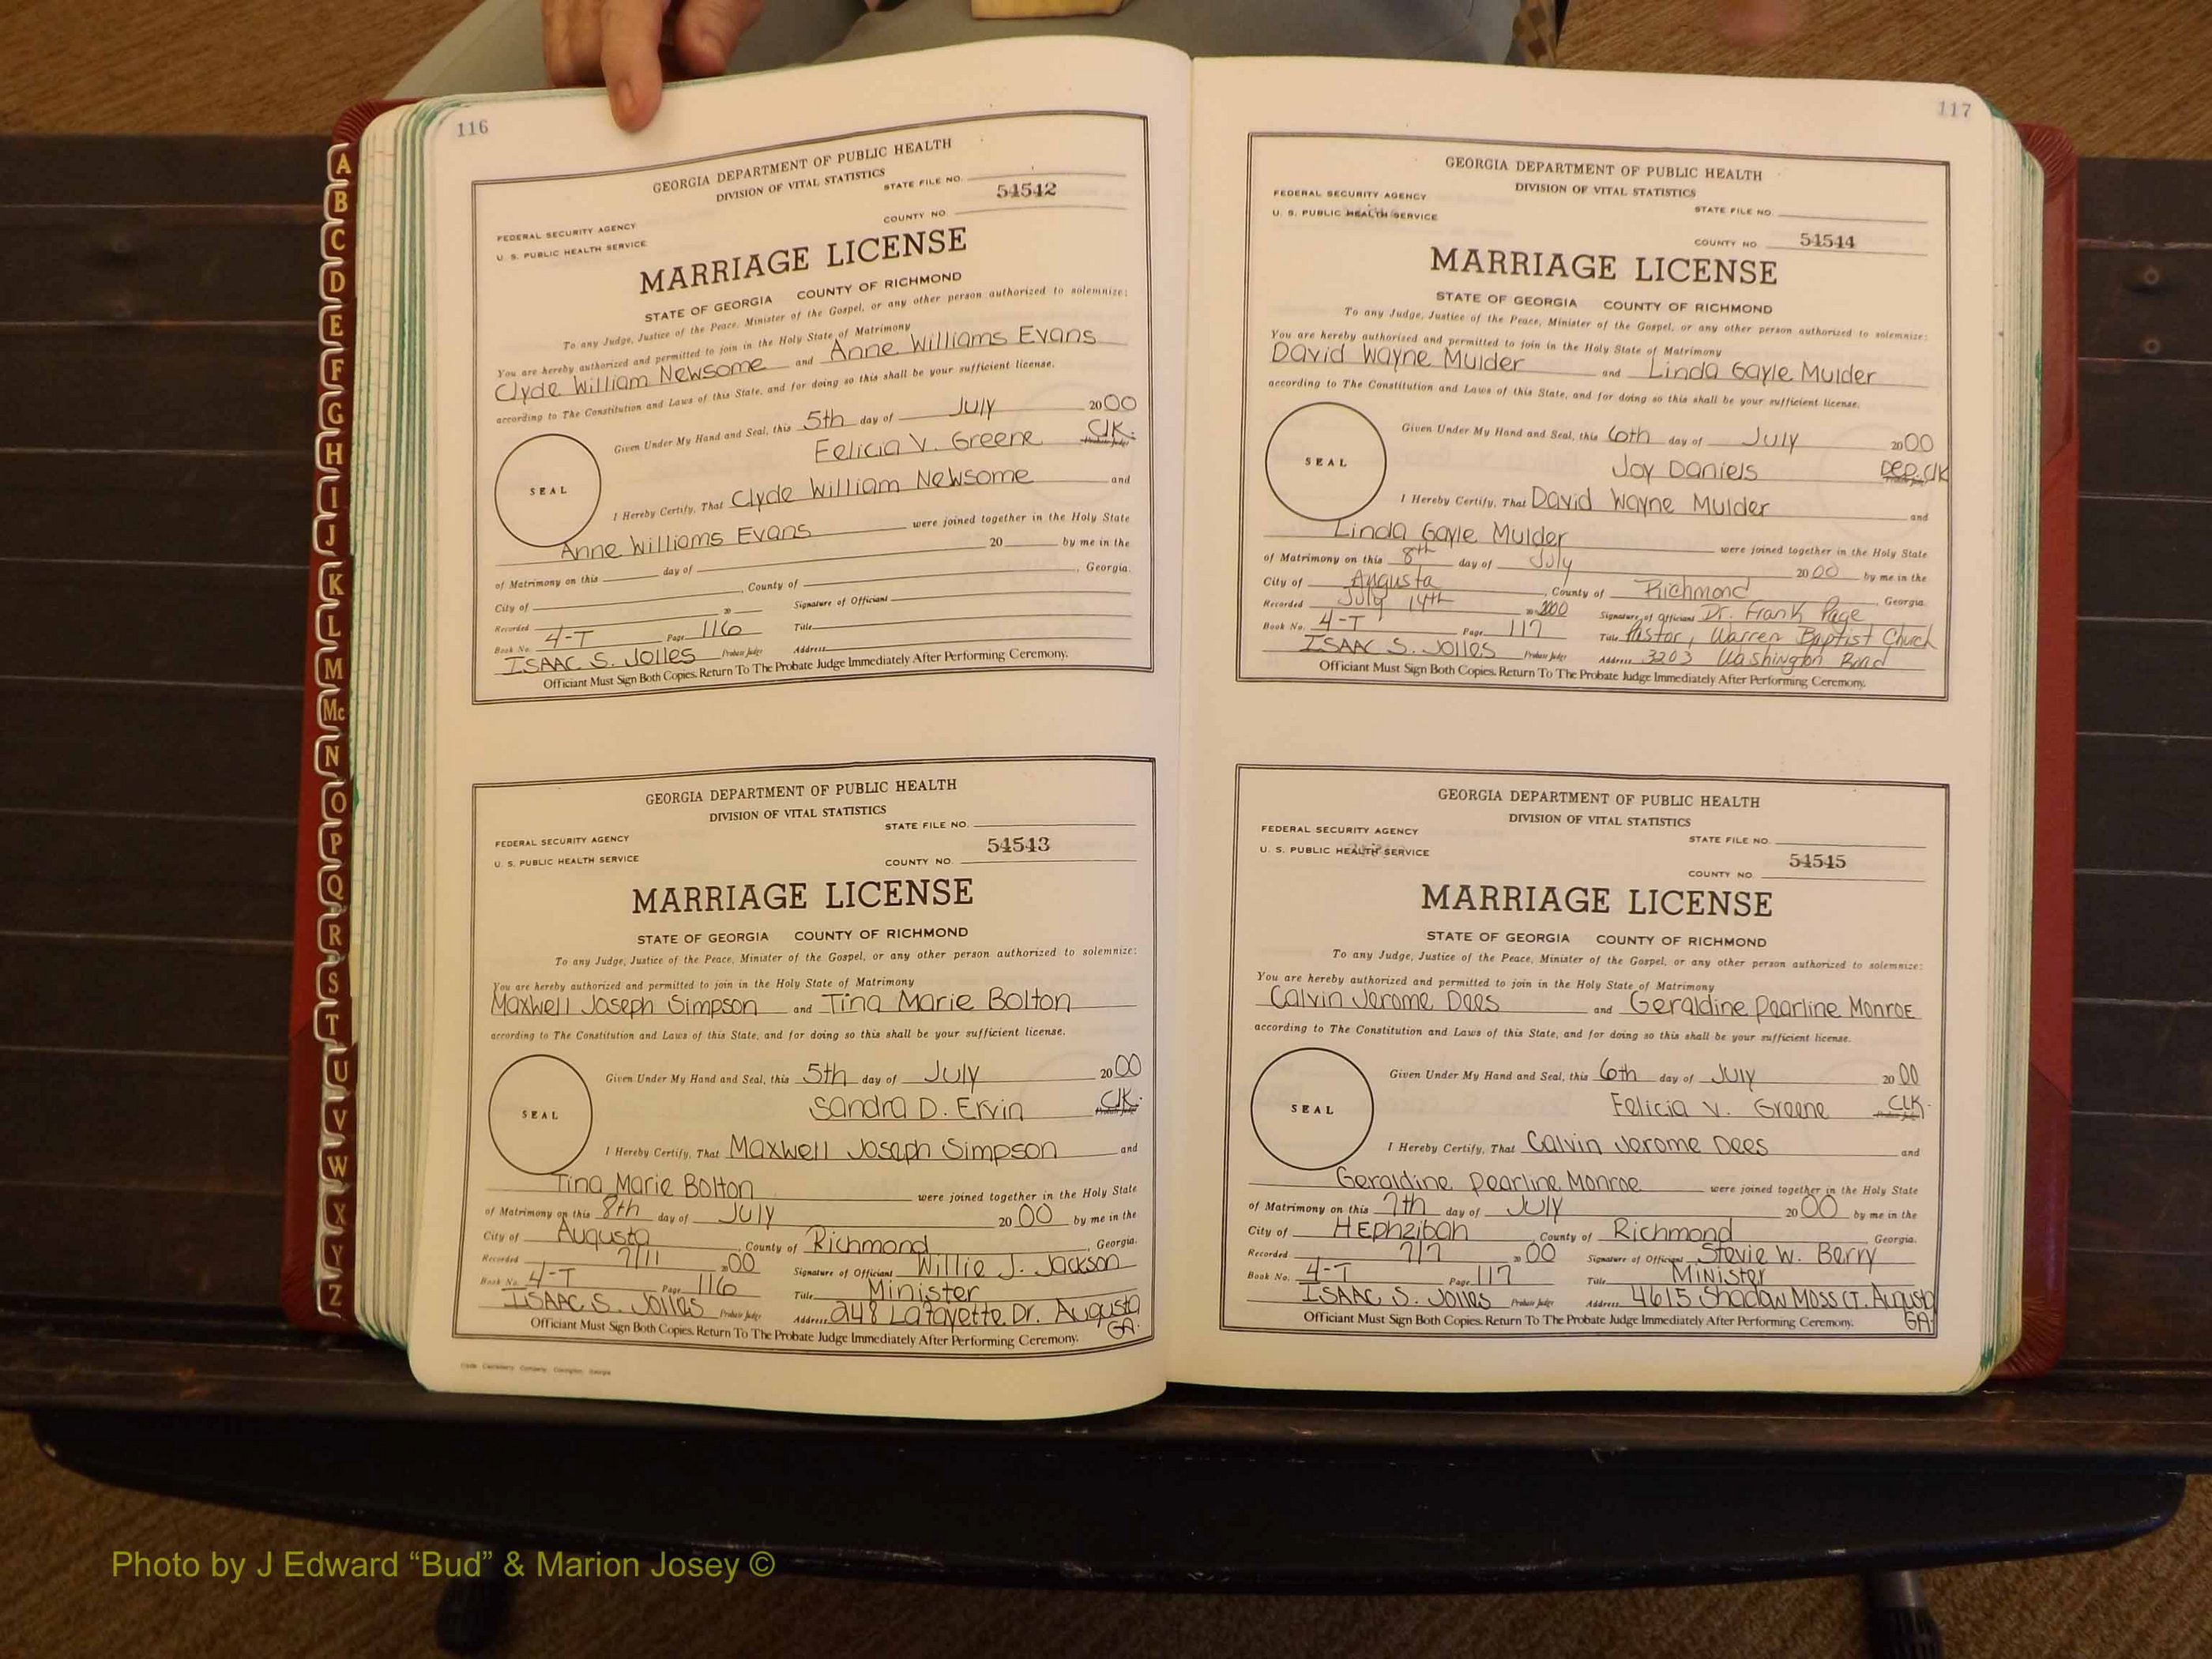 A
B
C
D
E
F
G
H
I
J
K
L
M
Mc
N
O
P
Q
R
S
T
U
V
W
X
Y
Z
116
GEORGIA DEPARTMENT OF PUBLIC HEALTH
DIVISION OF VITAL STATISTICS
STATE FILE NO.
54542
COUNTY NO.
FEDERAL SECURITY AGENCY
U. S. PUBLIC HEALTH SERVICE
MARRIAGE LICENSE
STATE OF GEORGIA COUNTY OF RICHMOND
To any Judge, Justice of the Peace, Minister of the Gospel, or any other person authorized to solemnize:
You are hereby authorized and permitted to join in the Holy State of Matrimony
Clyde William Newsome and Anne Williams Evans
according to The Constitution and Laws of this State, and for doing so this shall be your sufficient license.
Given Under My Hand and Seal, this 5th day of July 2000
Felicia V. Greene Clk.
SEAL
I Hereby Certify, That Clyde William Newsome and
Anne Williams Evans were joined together in the Holy State
of Matrimony on this day of 20 by me in the
City of , County of , Georgia.
Recorded 20 Signature of Officiant
Book No. 4-T Page 116 Title
ISAAC S. Jolles Probate Judge Address
Officiant Must Sign Both Copies. Return To The Probate Judge Immediately After Performing Ceremony.
GEORGIA DEPARTMENT OF PUBLIC HEALTH
DIVISION OF VITAL STATISTICS
STATE FILE NO.
FEDERAL SECURITY AGENCY
54543
U. S. PUBLIC HEALTH SERVICE
COUNTY NO.
MARRIAGE LICENSE
STATE OF GEORGIA COUNTY OF RICHMOND
To any Judge, Justice of the Peace, Minister of the Gospel, or any other person authorized to solemnize:
You are hereby authorized and permitted to join in the Holy State of Matrimony
Maxwell Joseph Simpson and Tina Marie Bolton
according to The Constitution and Laws of this State, and for doing so this shall be your sufficient license.
Given Under My Hand and Seal, this 5th day of July 2000
Sandra D. Ervin Clk.
SEAL
I Hereby Certify, That Maxwell Joseph Simpson and
Tina Marie Bolton were joined together in the Holy State
of Matrimony on this 8th day of July 2000 by me in the
City of Augusta , County of Richmond , Georgia.
Recorded 7/11 2000 Signature of Officiant Willie J. Jackson
Book No. 4-T Page 116 Title Minister
ISAAC S. Jolles Probate Judge Address 248 LaFayette Dr. Augusta GA.
Officiant Must Sign Both Copies. Return To The Probate Judge Immediately After Performing Ceremony.
117
GEORGIA DEPARTMENT OF PUBLIC HEALTH
DIVISION OF VITAL STATISTICS
FEDERAL SECURITY AGENCY
STATE FILE NO.
U. S. PUBLIC HEALTH SERVICE
COUNTY NO. 54544
MARRIAGE LICENSE
STATE OF GEORGIA COUNTY OF RICHMOND
To any Judge, Justice of the Peace, Minister of the Gospel, or any other person authorized to solemnize:
You are hereby authorized and permitted to join in the Holy State of Matrimony
David Wayne Mulder and Linda Gayle Mulder
according to The Constitution and Laws of this State, and for doing so this shall be your sufficient license.
Given Under My Hand and Seal, this 6th day of July 2000
Joy Daniels Dep. Clk
SEAL
I Hereby Certify, That David Wayne Mulder and
Linda Gayle Mulder were joined together in the Holy State
of Matrimony on this 8th day of July 2000 by me in the
City of Augusta , County of Richmond , Georgia.
Recorded July 14th 2000 Signature of Officiant Dr. Frank Page
Book No. 4-T Page 117 Title Pastor, Warren Baptist Church
ISAAC S. Jolles Probate Judge Address 3203 Washington Road
Officiant Must Sign Both Copies. Return To The Probate Judge Immediately After Performing Ceremony.
GEORGIA DEPARTMENT OF PUBLIC HEALTH
DIVISION OF VITAL STATISTICS
FEDERAL SECURITY AGENCY
STATE FILE NO.
U. S. PUBLIC HEALTH SERVICE
54545
COUNTY NO.
MARRIAGE LICENSE
STATE OF GEORGIA COUNTY OF RICHMOND
To any Judge, Justice of the Peace, Minister of the Gospel, or any other person authorized to solemnize:
You are hereby authorized and permitted to join in the Holy State of Matrimony
Calvin Jerome Dees and Geraldine Pearline Monroe
according to The Constitution and Laws of this State, and for doing so this shall be your sufficient license.
Given Under My Hand and Seal, this 6th day of July 2000
Felicia V. Greene Clk.
SEAL
I Hereby Certify, That Calvin Jerome Dees and
Geraldine Pearline Monroe were joined together in the Holy State
of Matrimony on this 7th day of July 2000 by me in the
City of Hephzibah , County of Richmond Georgia.
Recorded 7/7 2000 Signature of Officiant Stevie W. Berry
Book No. 4-T Page 117 Title Minister
ISAAC S. Jolles Probate Judge Address 4615 Shadow Moss Ct. Augusta GA.
Officiant Must Sign Both Copies. Return To The Probate Judge Immediately After Performing Ceremony.
Photo by J Edward “Bud” & Marion Josey ©